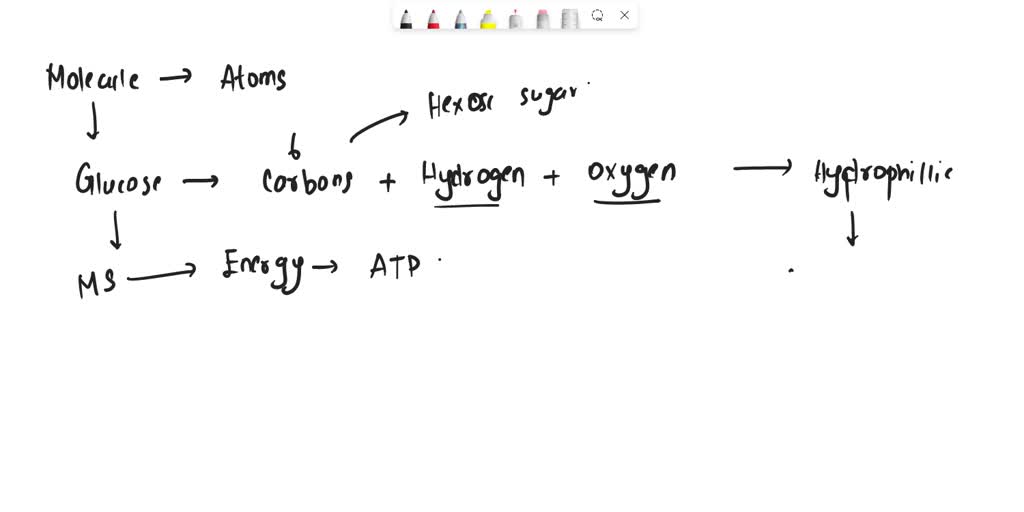 Molecule → Atoms
Hexose sugar
6
Glucose → Carbons + Hydrogen + Oxygen → Hydrophillic
MS → Energy → ATP